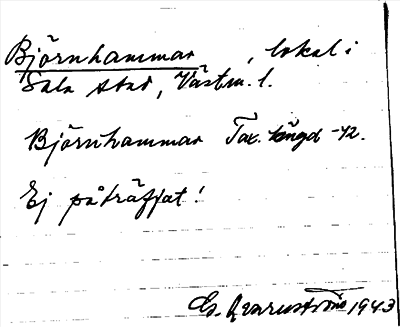 Björnhammar, lokal i
Sala stad, Västm. l.
Björnhammar Tax. längd -42.
Ej påträffat!
1943